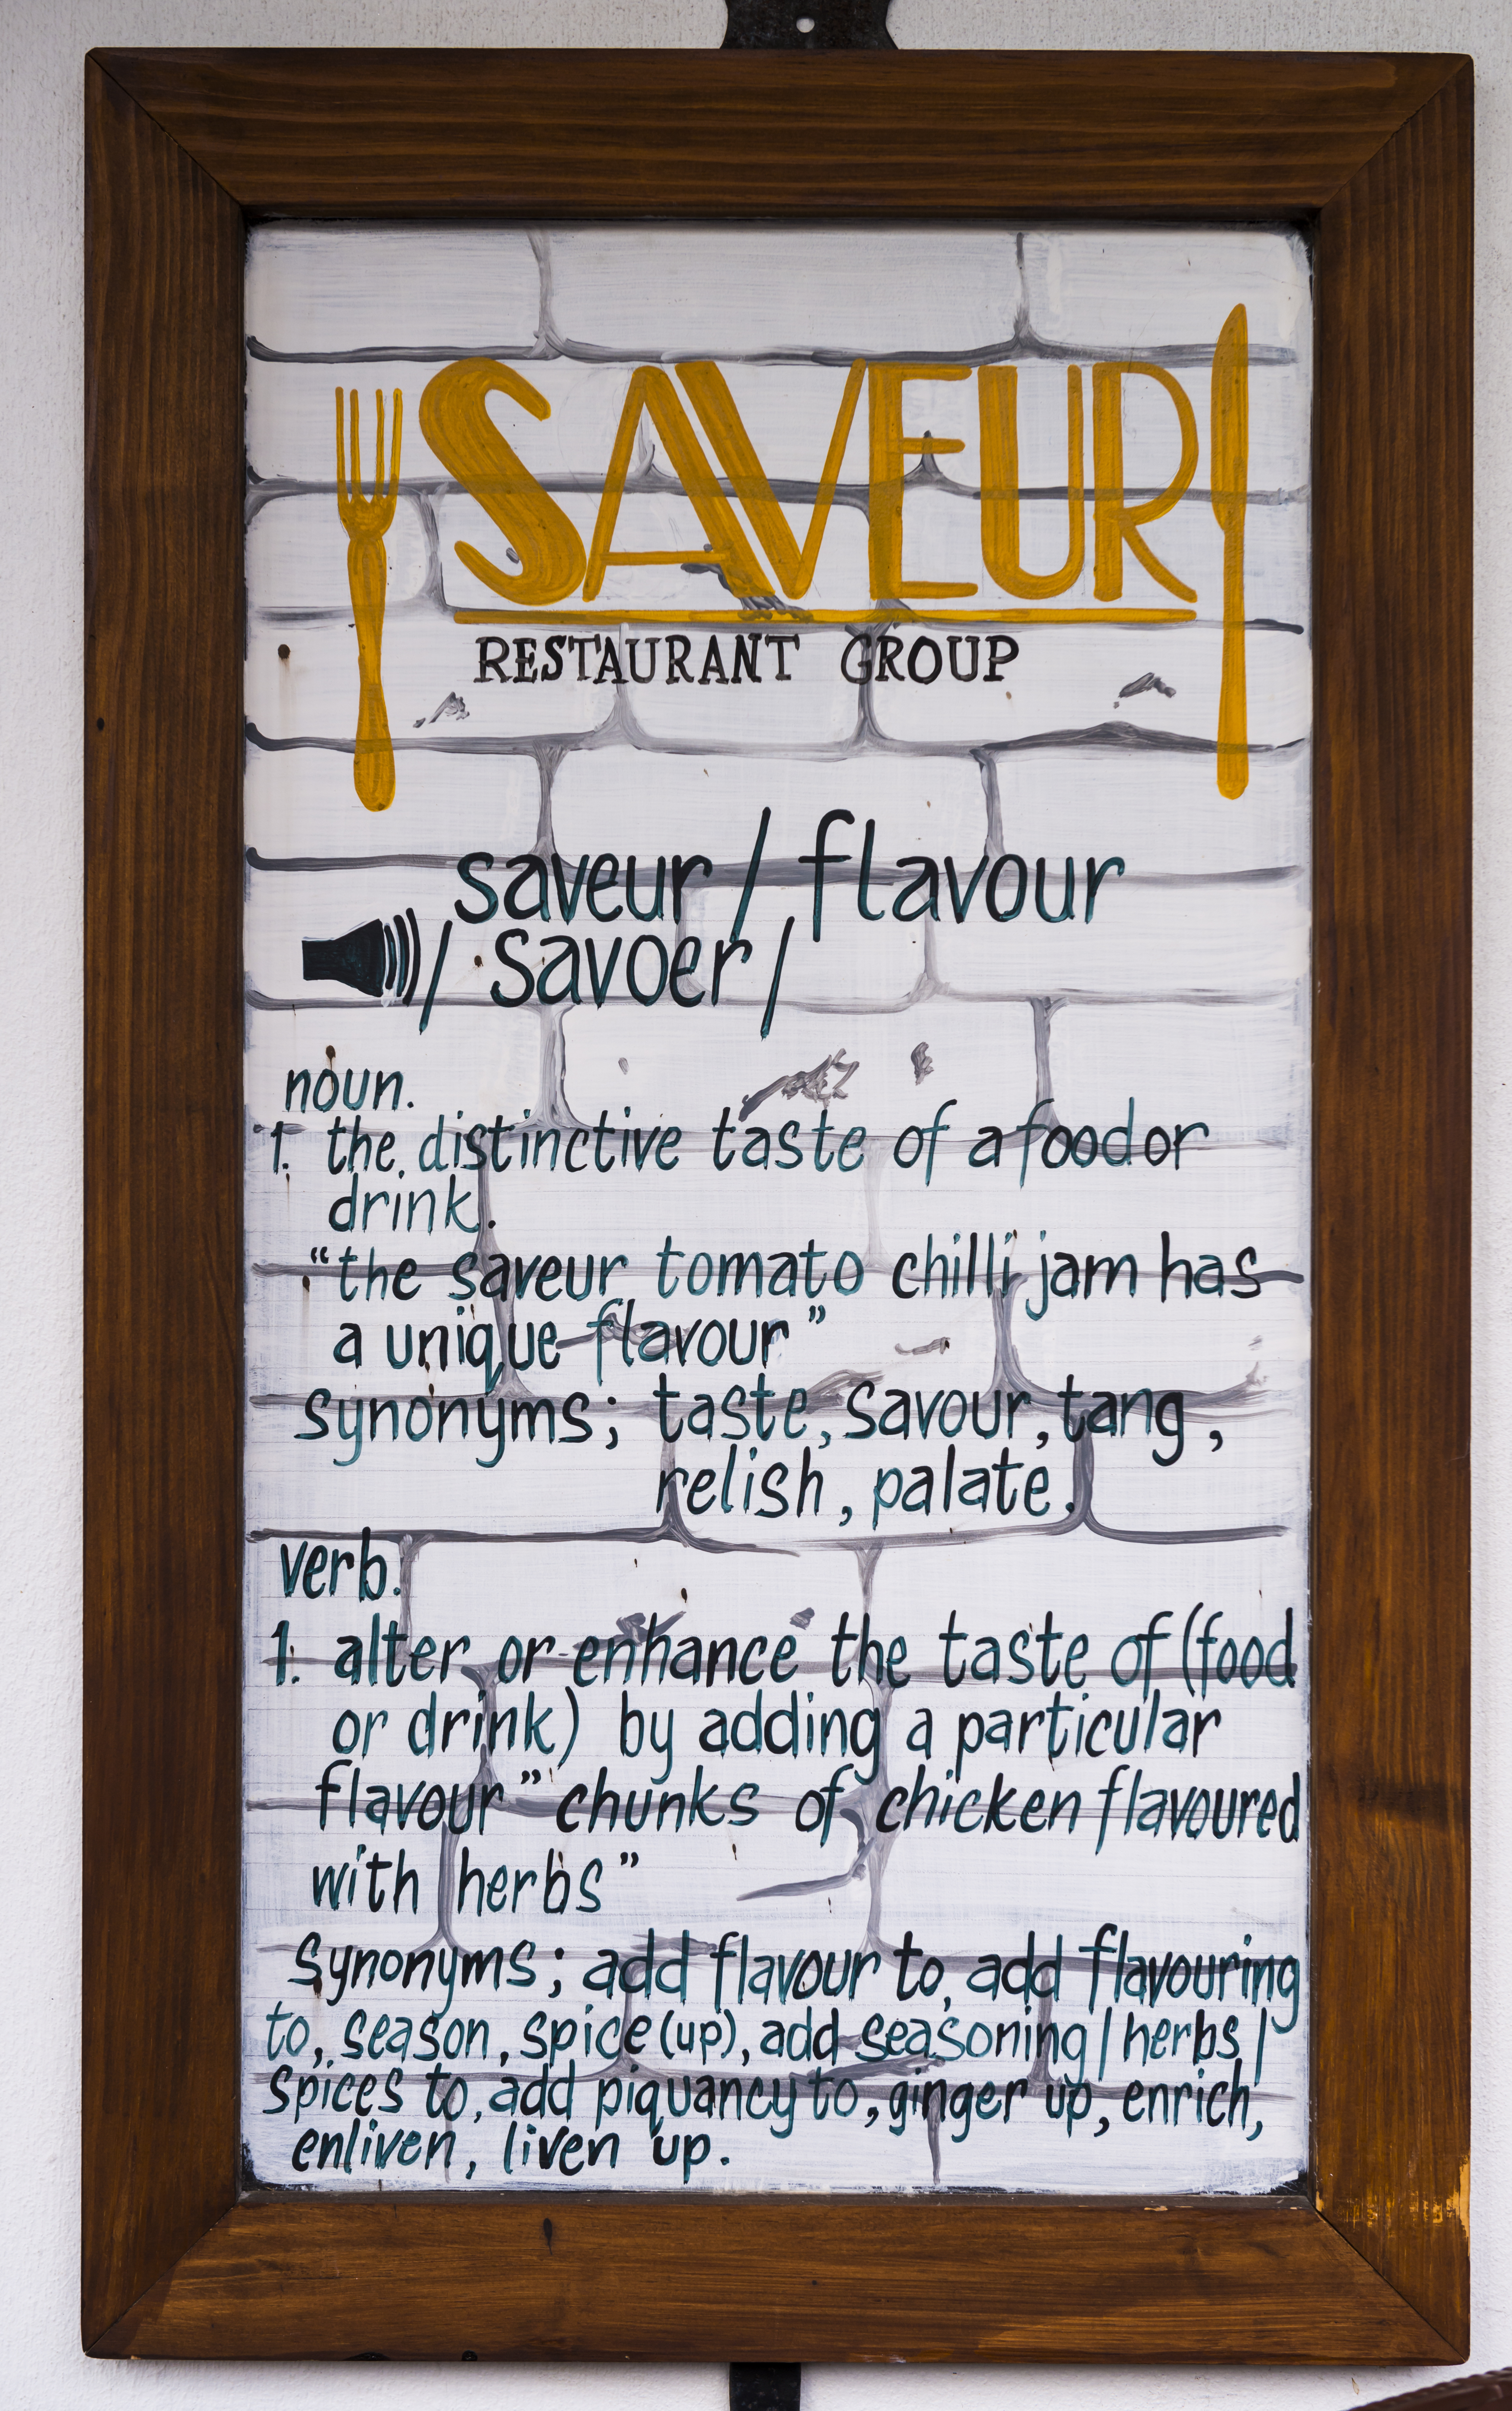 SAVEUR
RESTAURANT GROUP
saveur / flavour
/ savoer /
noun.
1. the distinctive taste of a food or
drink.
“the saveur tomato chilli jam has
a unique flavour”
synonyms; taste, savour, tang,
relish, palate.
verb.
1. alter or enhance the taste of (food
or drink) by adding a particular
flavour” chunks of chicken flavoured
with herbs”
synonyms; add flavour to, add flavouring
to, season, spice (up), add seasoning / herbs /
spices to, add piquancy to, ginger up, enrich,
enliven, liven up.